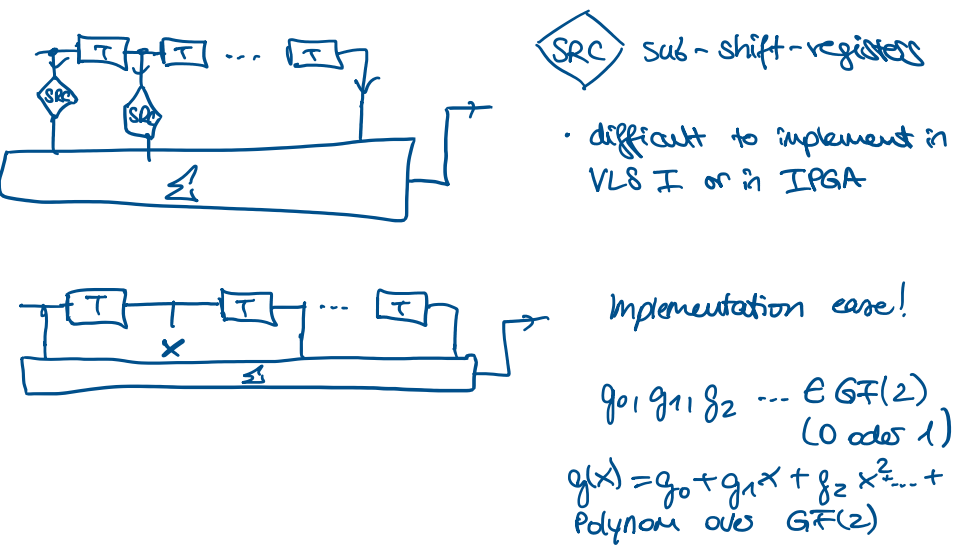 T T ... T
SRC SRC
Σ
SRC sub-shift-registers
• difficult to implement in
VLSI or in IPGA
T T ... T
X
Σ
Implementation ease!
g₀, g₁, g₂ ... ∈ GF(2)
(0 oder 1)
g(x) = g₀ + g₁x + g₂x² + ... +
Polynom over GF(2)